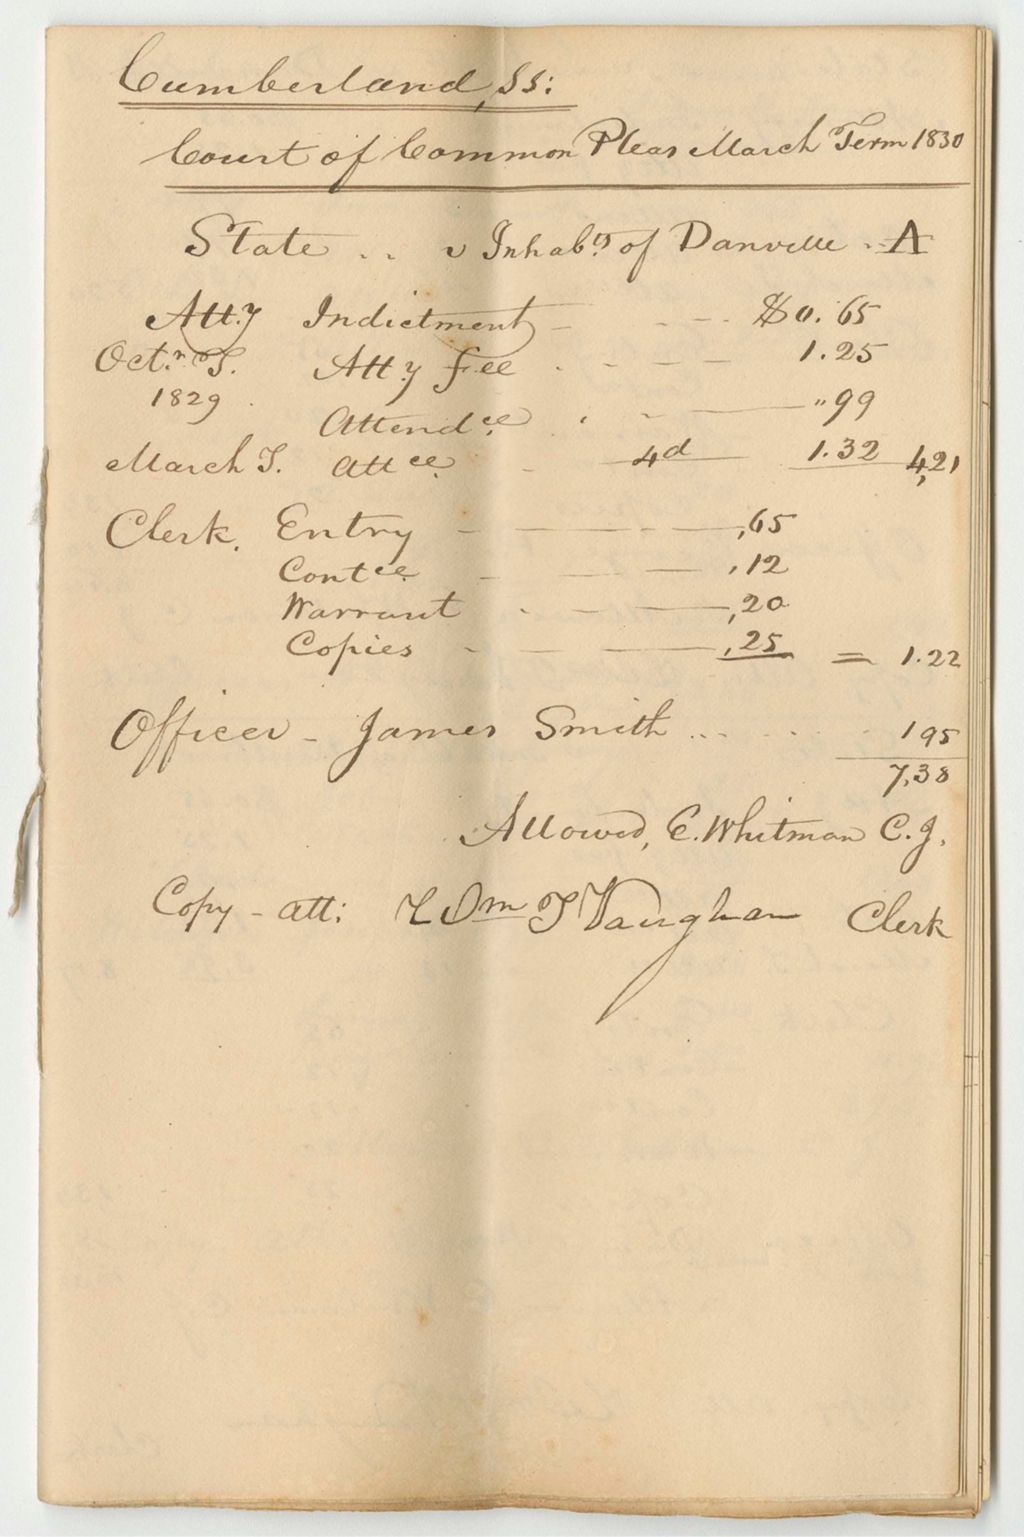 Cumberland, SS:
Court of Common Pleas March Term 1830
State .. v Inhabts of Danville .. A
Atty Indictment - - - - $0.65
Octr. T. Atty fee . - - - 1.25
1829 . Attendce . - - "99
March T. Attce - 4d 1.32 4,21
Clerk. Entry - - - - - ,65
Contce. - - - ,12
Warrant - - - ,20
Copies - - - ,25 = 1.22
Officer - James Smith ... . . . 1 95
7,38
Allowed, E. Whitman C. J.
Copy - att: Wm T Vaughan Clerk